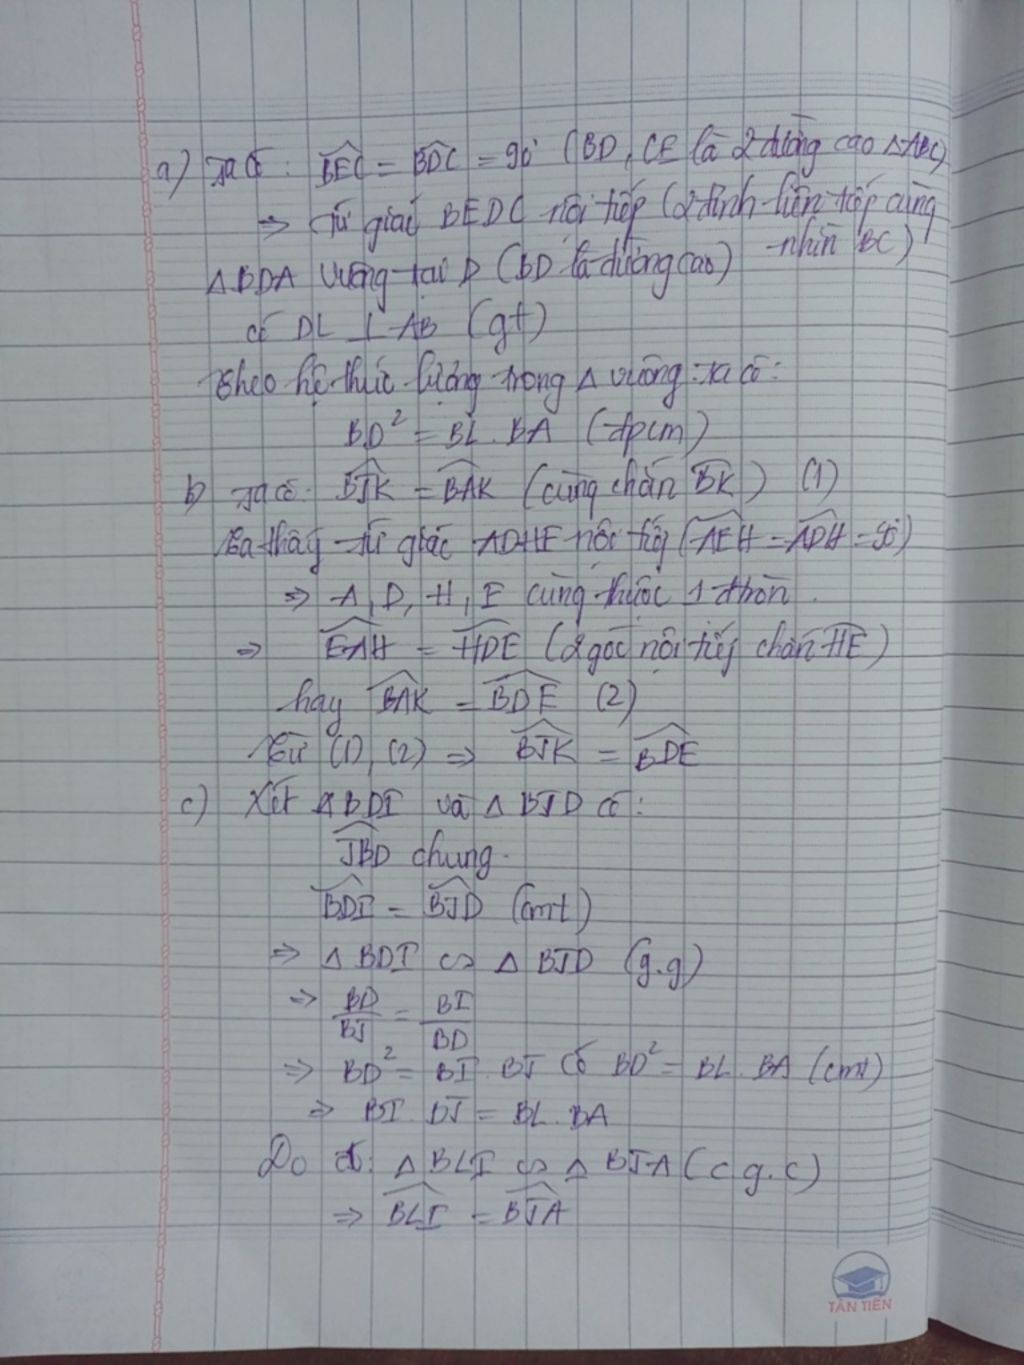 a) Ta có: BEC = BDC = 90° (BD, CE là 2 đường cao △ABC)
⇒ Tứ giác BEDC nội tiếp (2 đỉnh liên tiếp cùng
nhìn BC)
△BDA vuông tại D (BD là đường cao)
có DL ⊥ AB (gt)
Theo hệ thức lượng trong △ vuông: ta có:
BD² = BL.BA (đpcm)
b) Ta có: BJK = BAK (cùng chắn BK) (1)
Ta thấy tứ giác ADHE nội tiếp (AEH = ADH = 90)
⇒ A, D, H, E cùng thuộc 1 đtròn.
⇒ EAH = HDE (2 góc nội tiếp chắn HE)
hay BAK = BDE (2)
Từ (1), (2) ⇒ BJK = BDE
c) Xét △BDI và △BJD có:
JBD chung.
BDI = BJD (cmt)
⇒ △BDI ∽ △BJD (g.g)
⇒ BD/BJ = BI/BD
⇒ BD² = BI.BJ có BD² = BL.BA (cmt)
⇒ BI.BJ = BL.BA
Do đó: △BLI ∽ △BJA (c.g.c)
⇒ BLI = BJA
TÂN TIẾN